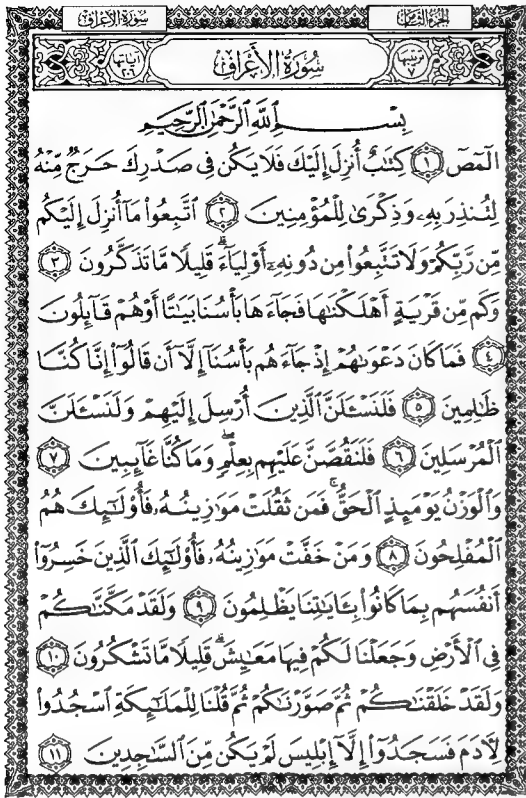 سُورَةُ الأَعْرَافِ
الجُزْءُ الثَّامِنُ
ترتيبها ٧
سُورَةُ الأَعْرَافِ
آياتها ٢٠٦
بِسْمِ ٱللَّهِ ٱلرَّحْمَٰنِ ٱلرَّحِيمِ
الٓمٓصٓ ١ كِتَٰبٌ أُنزِلَ إِلَيْكَ فَلَا يَكُن فِى صَدْرِكَ حَرَجٌ مِّنْهُ
لِتُنذِرَ بِهِۦ وَذِكْرَىٰ لِلْمُؤْمِنِينَ ٢ ٱتَّبِعُوا۟ مَآ أُنزِلَ إِلَيْكُم
مِّن رَّبِّكُمْ وَلَا تَتَّبِعُوا۟ مِن دُونِهِۦٓ أَوْلِيَآءَ ۗ قَلِيلًا مَّا تَذَكَّرُونَ ٣
وَكَم مِّن قَرْيَةٍ أَهْلَكْنَٰهَا فَجَآءَهَا بَأْسُنَا بَيَٰتًا أَوْ هُمْ قَآئِلُونَ
٤ فَمَا كَانَ دَعْوَىٰهُمْ إِذْ جَآءَهُم بَأْسُنَآ إِلَّآ أَن قَالُوٓا۟ إِنَّا كُنَّا
ظَٰلِمِينَ ٥ فَلَنَسْـَٔلَنَّ ٱلَّذِينَ أُرْسِلَ إِلَيْهِمْ وَلَنَسْـَٔلَنَّ
ٱلْمُرْسَلِينَ ٦ فَلَنَقُصَّنَّ عَلَيْهِم بِعِلْمٍ ۖ وَمَا كُنَّا غَآئِبِينَ ٧
وَٱلْوَزْنُ يَوْمَئِذٍ ٱلْحَقُّ ۚ فَمَن ثَقُلَتْ مَوَٰزِينُهُۥ فَأُو۟لَٰٓئِكَ هُمُ
ٱلْمُفْلِحُونَ ٨ وَمَنْ خَفَّتْ مَوَٰزِينُهُۥ فَأُو۟لَٰٓئِكَ ٱلَّذِينَ خَسِرُوٓا۟
أَنفُسَهُم بِمَا كَانُوا۟ بِـَٔايَٰتِنَا يَظْلِمُونَ ٩ وَلَقَدْ مَكَّنَّٰكُمْ
فِى ٱلْأَرْضِ وَجَعَلْنَا لَكُمْ فِيهَا مَعَٰيِشَ ۗ قَلِيلًا مَّا تَشْكُرُونَ ١٠
وَلَقَدْ خَلَقْنَٰكُمْ ثُمَّ صَوَّرْنَٰكُمْ ثُمَّ قُلْنَا لِلْمَلَٰٓئِكَةِ ٱسْجُدُوا۟
لِـَٔادَمَ فَسَجَدُوٓا۟ إِلَّآ إِبْلِيسَ لَمْ يَكُن مِّنَ ٱلسَّٰجِدِينَ ١١